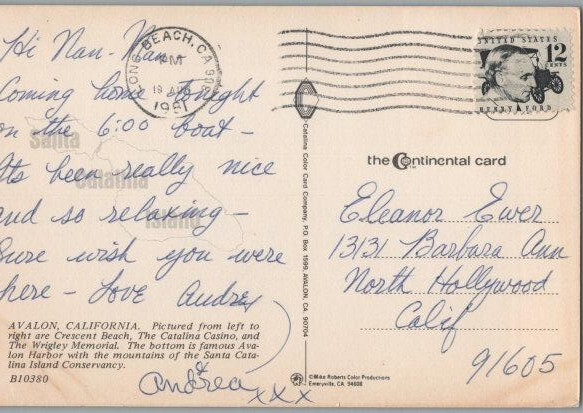 Hi Nan-Nan
Coming home tonight
on the 6:00 boat-
Its been really nice
and so relaxing-
Sure wish you were
here - Love Andrea
&
Andrea xxx
Santa
Catalina
Island
AVALON, CALIFORNIA. Pictured from left to
right are Crescent Beach, The Catalina Casino, and
The Wrigley Memorial. The bottom is famous Ava-
lon Harbor with the mountains of the Santa Cata-
lina Island Conservancy.
B10380
LONG BEACH, CA
PM
19
Catalina Color Card Company, P.O. Box 1599, AVALON, CA. 90704
©Mike Roberts Color Productions
Emeryville, CA 94608
UNITED STATES
12
CENTS
HENRY FORD
the Continental card
TM
Eleanor Ewer
13131 Barbara Ann
North Hollywood
Calif
91605